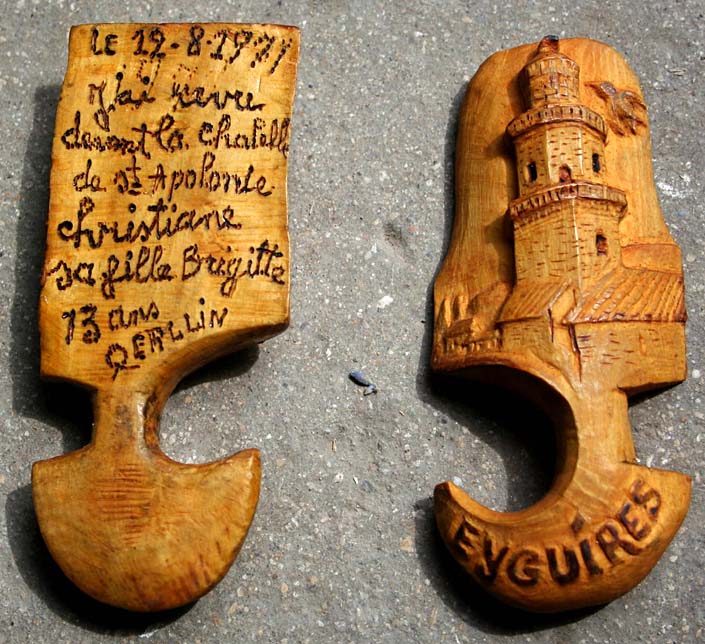 LE 12-8-1971
j'ai revue
devant la chapelle
de st Apolonie
christiane
sa fille Brigitte
13 ans
QERLLIN
EYGUIRES